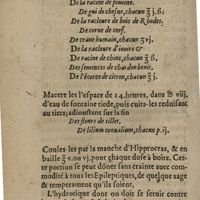 De la racine de peuoine.
De gui de chesne, chacun ʒ j. ß.
De la racleure de bois de Rhodes.
De corne de cerf.
De crane humain, chacun ʒ vj.
De la racleure d'iuoire &
De racine de chine, chacun ℥ ß.
Des semences de chardon benit.
De l'écorce de citron, chacun ʒ j.
Macere les l'espace de 24. heures, dans ℔ viij.
d'eau de fontaine tiede, puis cuits-les reduisant
au tiers; adioustant sur la fin
Des fleurs de tillet.
De lilium conualium, chacun p. ij.
Coules-les par la manche d'Hippocras, & en
baille ℥ v. ou vj. pour chaque dose à boire. Cet-
te portion se peut donner sans crainte auec com-
modité à tous les Epileptiques, de quelque aage
& temperament qu'ils soient.
L'hydrotique dont on doit se seruir contre